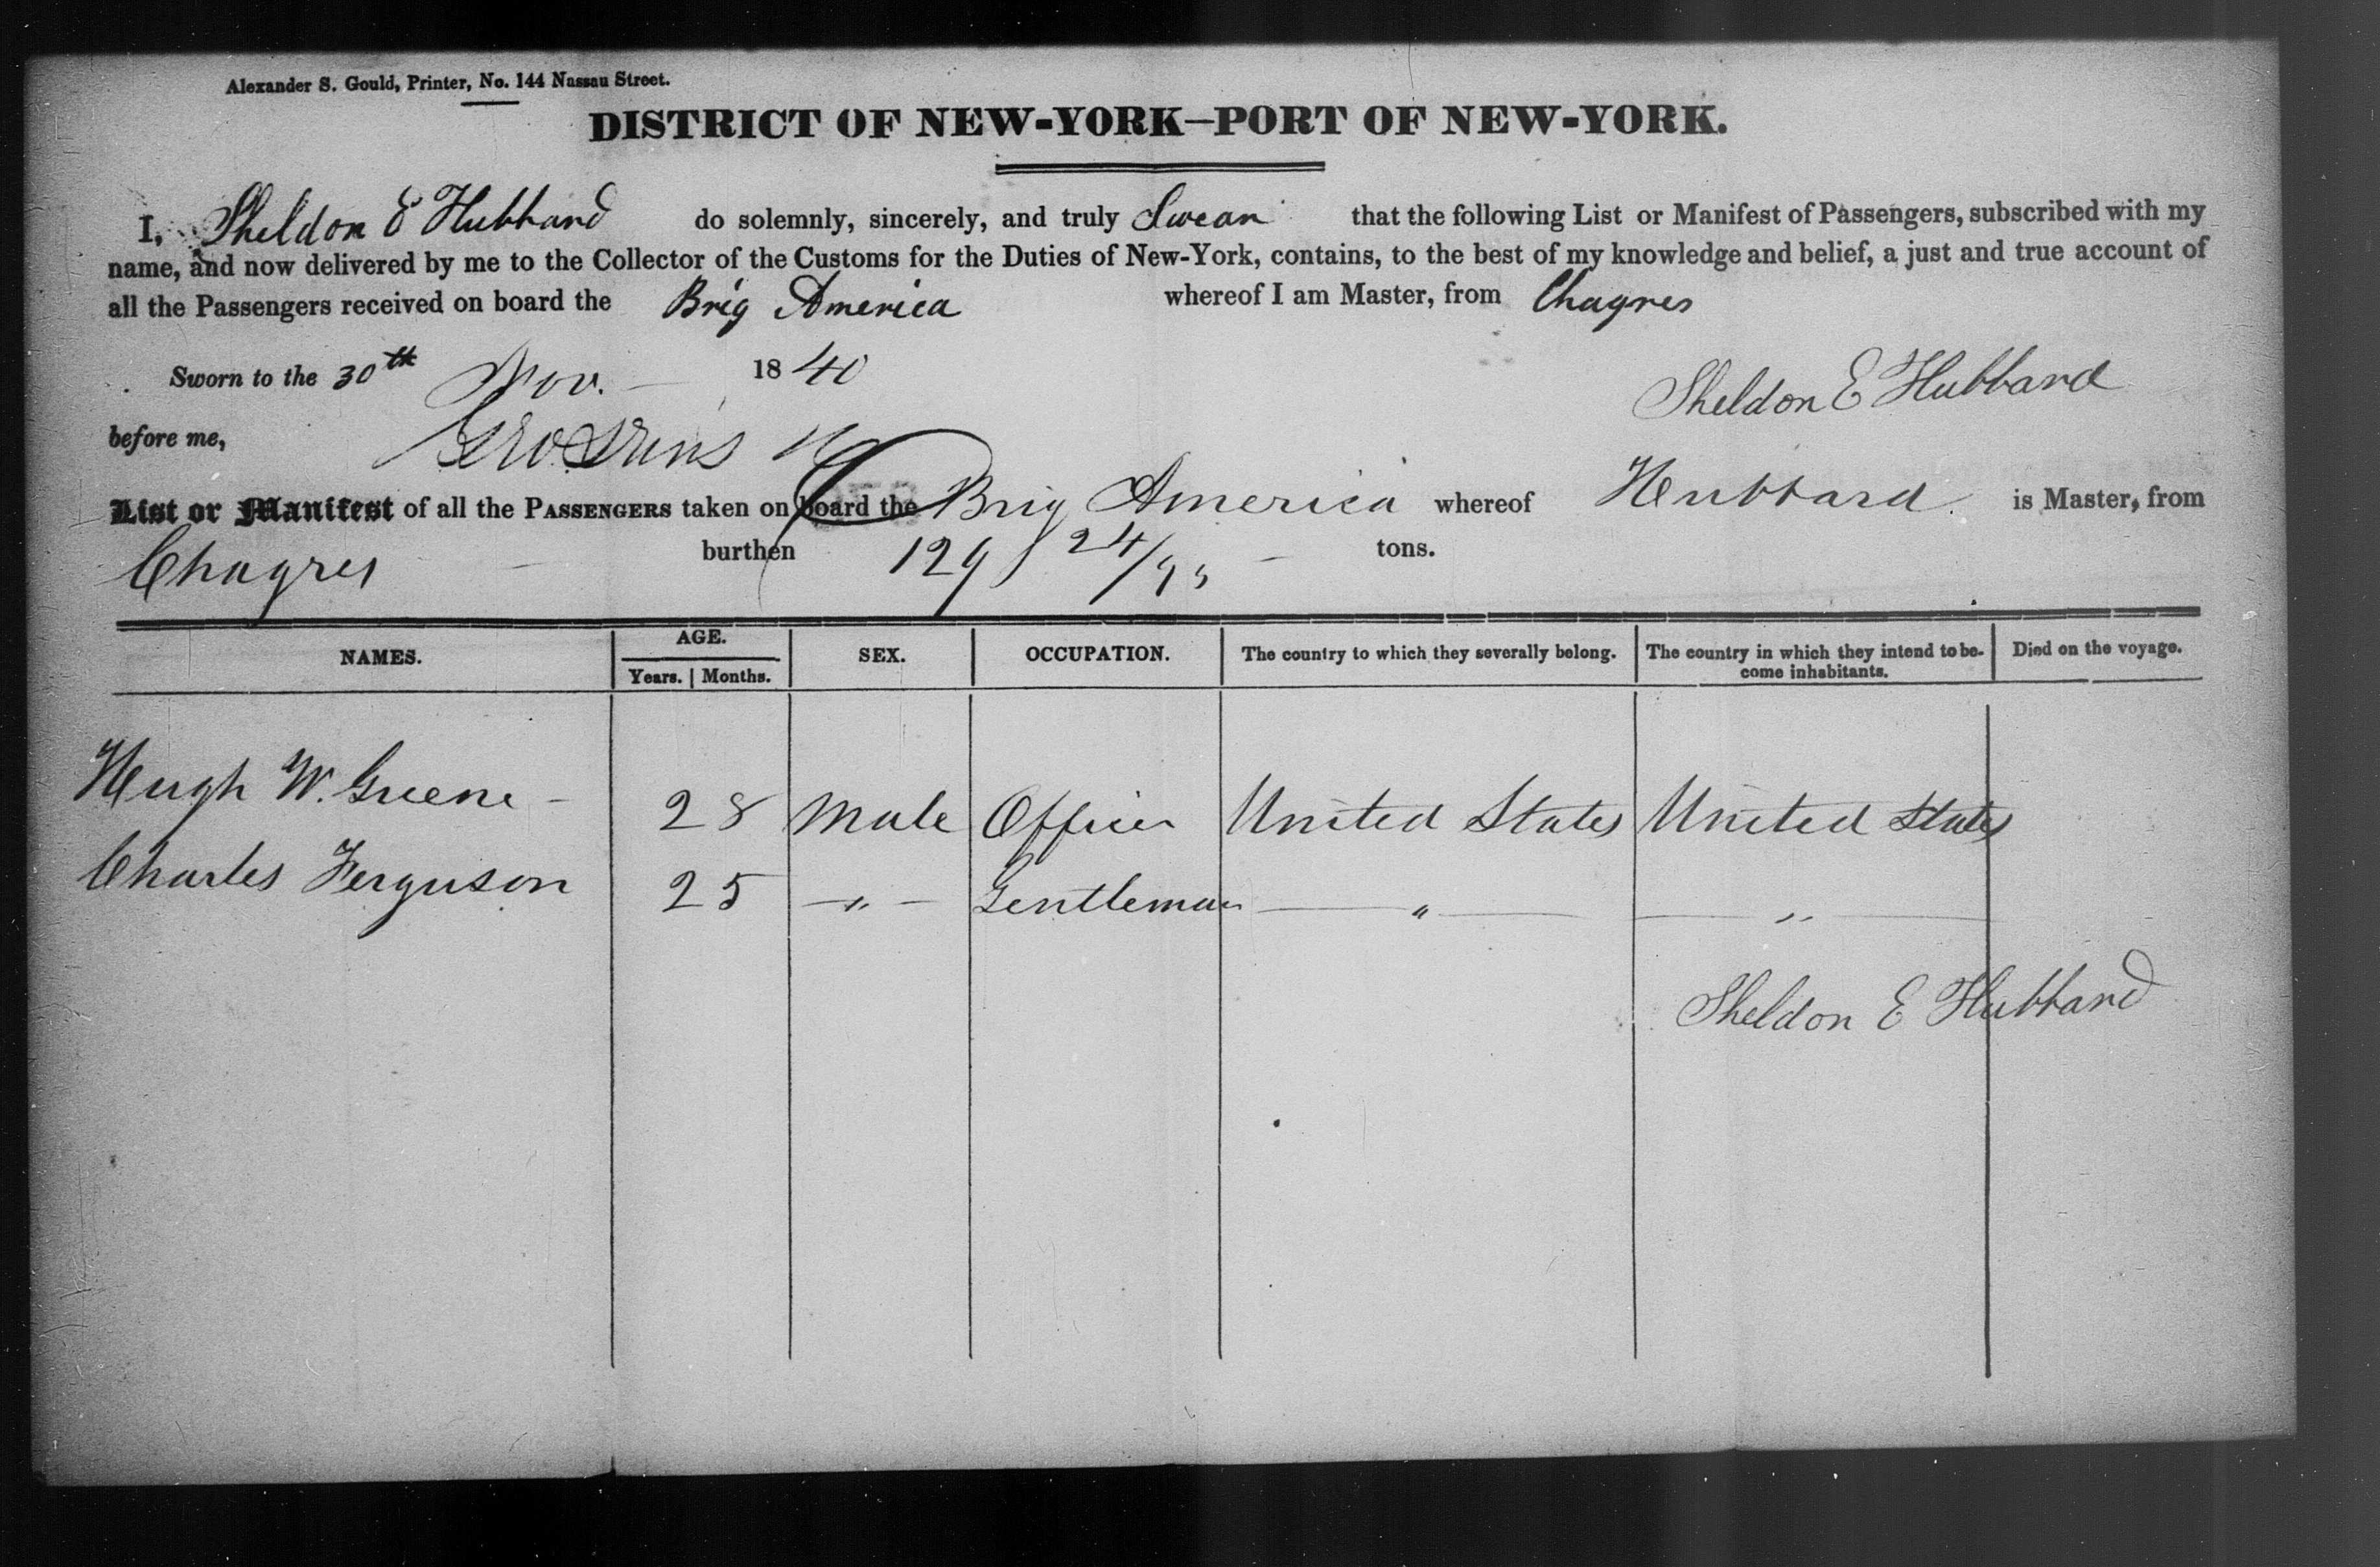 Alexander S. Gould, Printer, No. 144 Nassau Street.
DISTRICT OF NEW-YORK—PORT OF NEW-YORK.
I, Sheldon E Hubbard do solemnly, sincerely, and truly Swear that the following List or Manifest of Passengers, subscribed with my
name, and now delivered by me to the Collector of the Customs for the Duties of New-York, contains, to the best of my knowledge and belief, a just and true account of
all the Passengers received on board the Brig America whereof I am Master, from Chagres
Sworn to the 30th Nov. 1840
Sheldon E Hubbard
before me,
List or Manifest of all the PASSENGERS taken on board the Brig America whereof Hubbard is Master, from
Chagres burthen 129 24/95 tons.
NAMES. AGE. SEX. OCCUPATION. The country to which they severally belong. The country in which they intend to be- Died on the voyage.
Years. | Months. come inhabitants.
Hugh W. Greene - 28 Male Officer United States United States
Charles Ferguson 25 - " - Gentleman — " — — " —
Sheldon E Hubbard